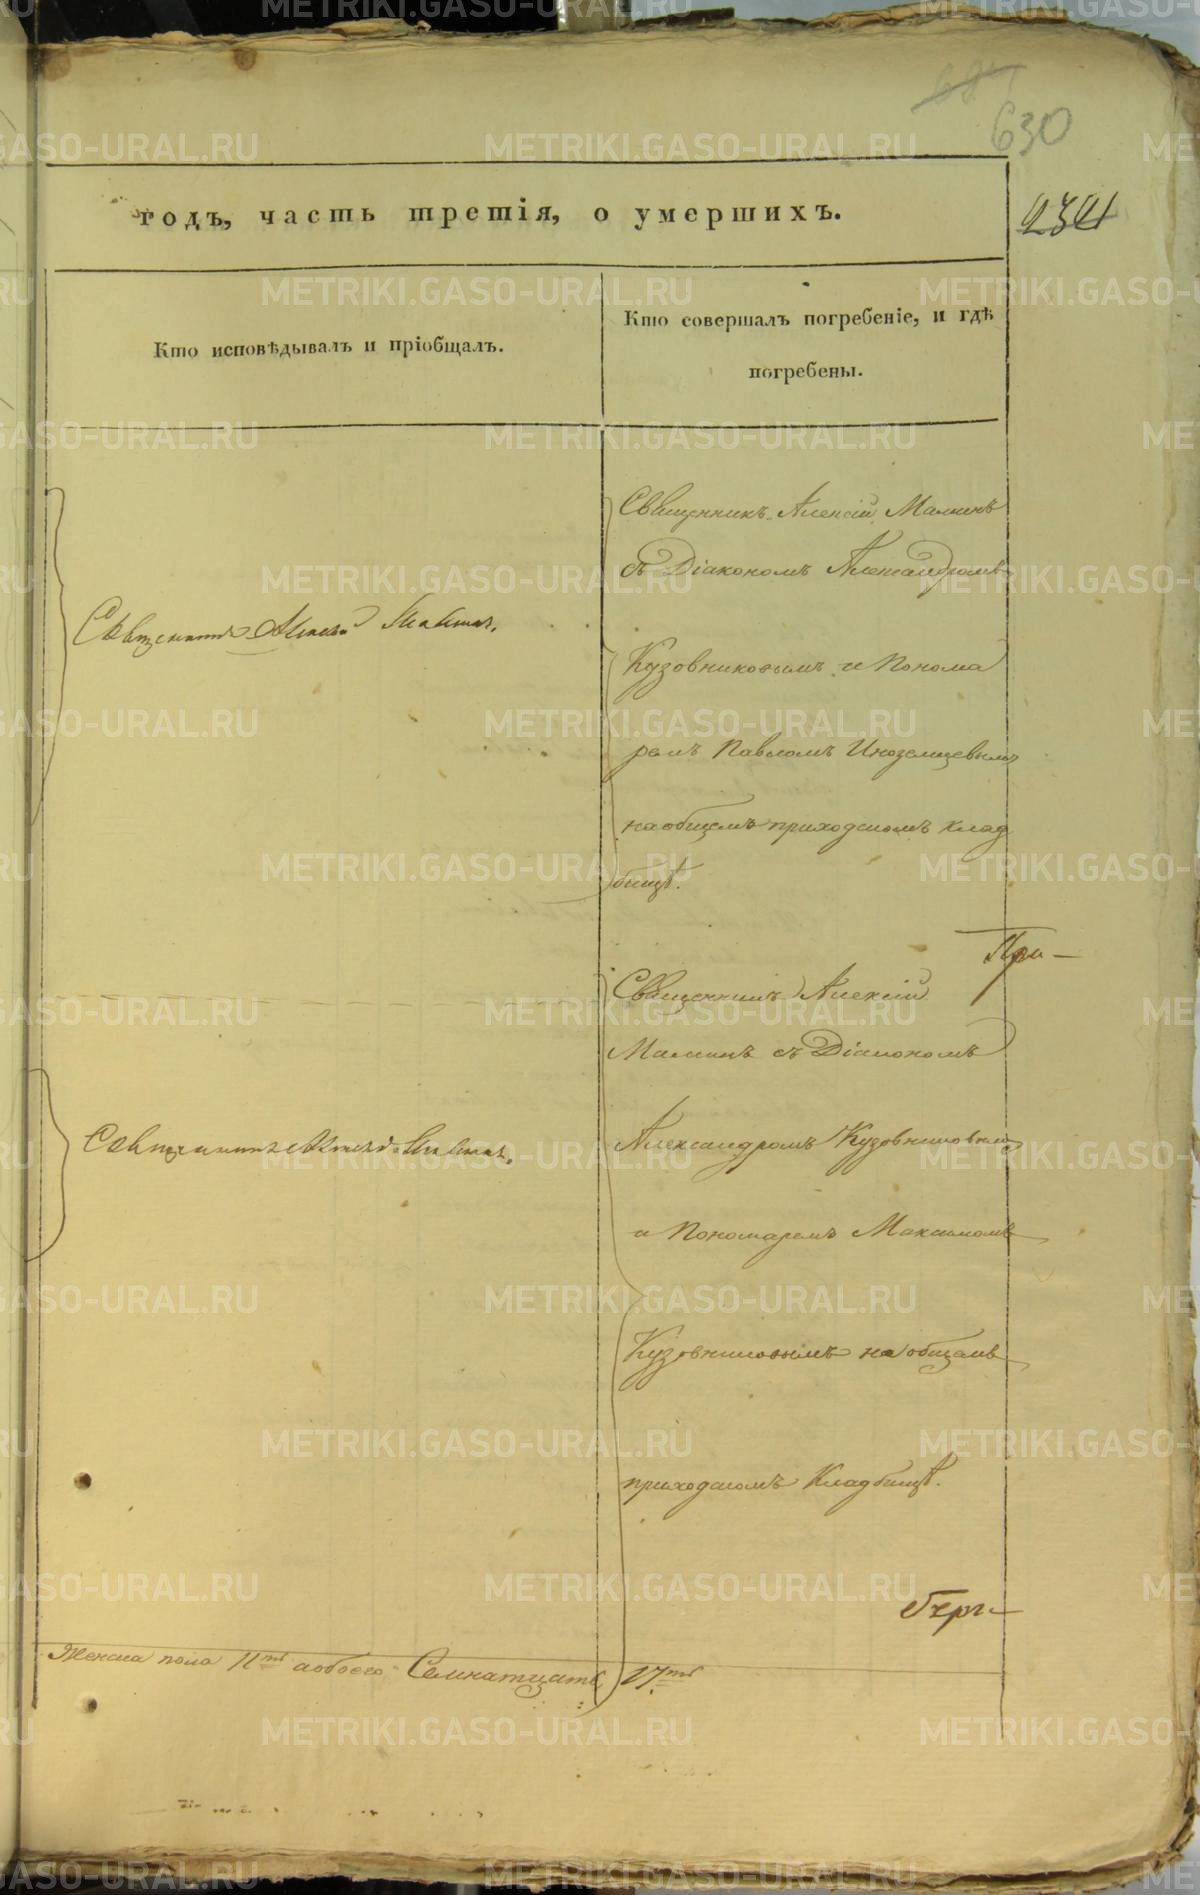 630
годъ, часть третія, о умершихъ.
Кто исповѣдывалъ и пріобщалъ.
Кто совершалъ погребеніе, и гдѣ
погребены.
Священникъ Алексій Малинъ
съ Діакономъ Александромъ
Священникъ Алексѣй
Кузовниковымъ и Понома
ремъ Павломъ Иноземцевымъ
на общемъ приходскомъ клад
бищѣ.
При-
Священникъ Алексій
Малинъ съ Діакономъ
Священникъ Алексѣй
Александромъ Кузовниковымъ
и Пономаремъ Максимомъ
Кузовниковымъ на общемъ
приходскомъ Кладбищѣ.
Женска пола 11ть а обоего Семнатцать 17ть
METRIKI.GASO-URAL.RU